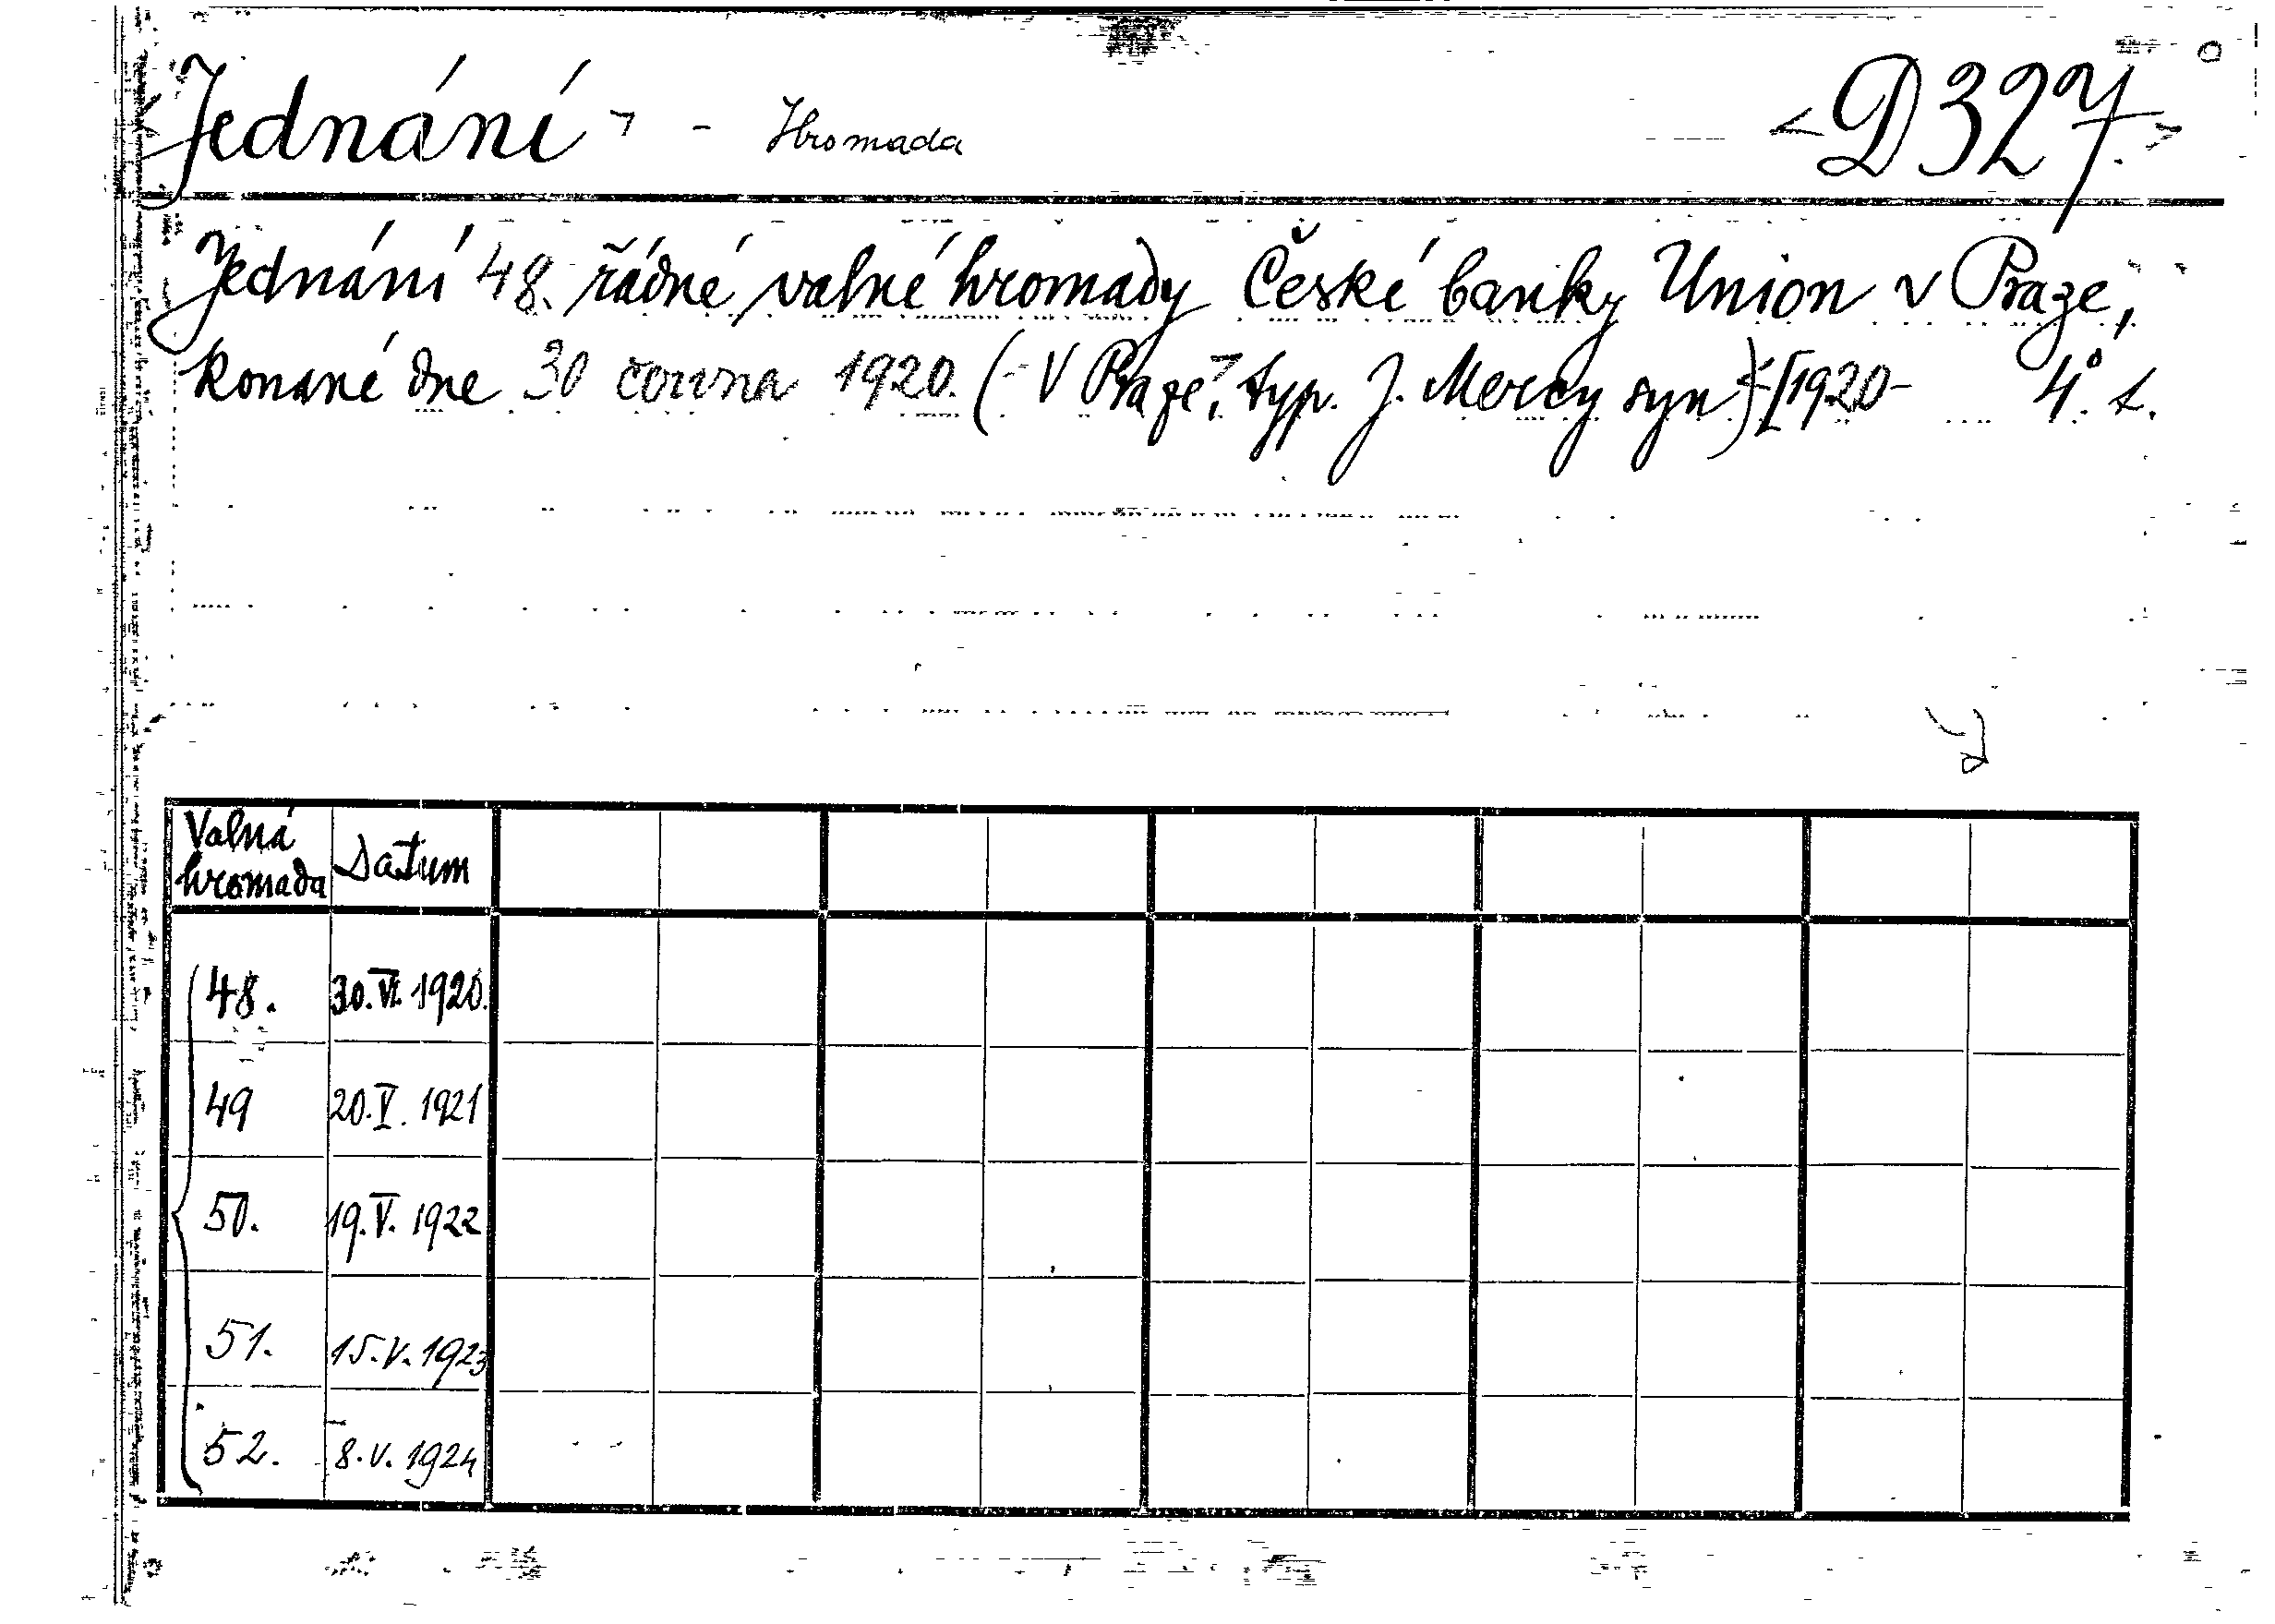 Jednání - Hromada D 327.
Jednání 48. řádné valné hromady České banky Union v Praze,
konané dne 30 června 1920. (- V Praze, typ. J. Mercy syn) [1920- 4° t.
Valná hromada Datum
48. 30.VI. 1920.
49 20.V. 1921
50. 19.V. 1922
51. 15.V. 1923
52. 8.V. 1924